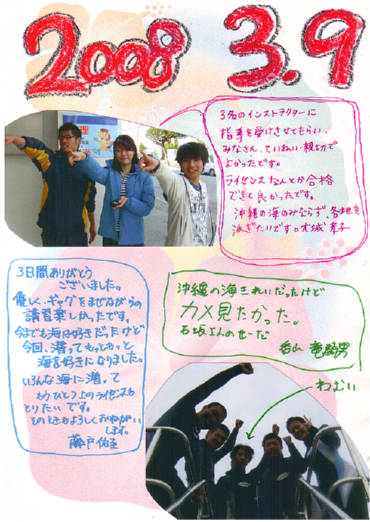 2008 3.9
3名のインストラクターに
指導を受けさせてもらい、
みなさん、ていねい・親切で
よかったです。
ライセンスなんとか合格
できて良かったです。
沖縄の海のみならず、各地を
泳ぎたいです。
3日間ありがとう
ございました。
優しく、ギャグをまぜながらの
講習楽しかったです。
今までも海は好きだったけど
今回、潜ってもっともっと
海を好きになりました。
いろんな海に潜って
もうひとつ上のライセンスも
とりたいです。
そのときもよろしくおねがい
します。
藤戸
沖縄の海きれいだったけど
カメ見たかった。
石坂さんのせーだ
ねむい